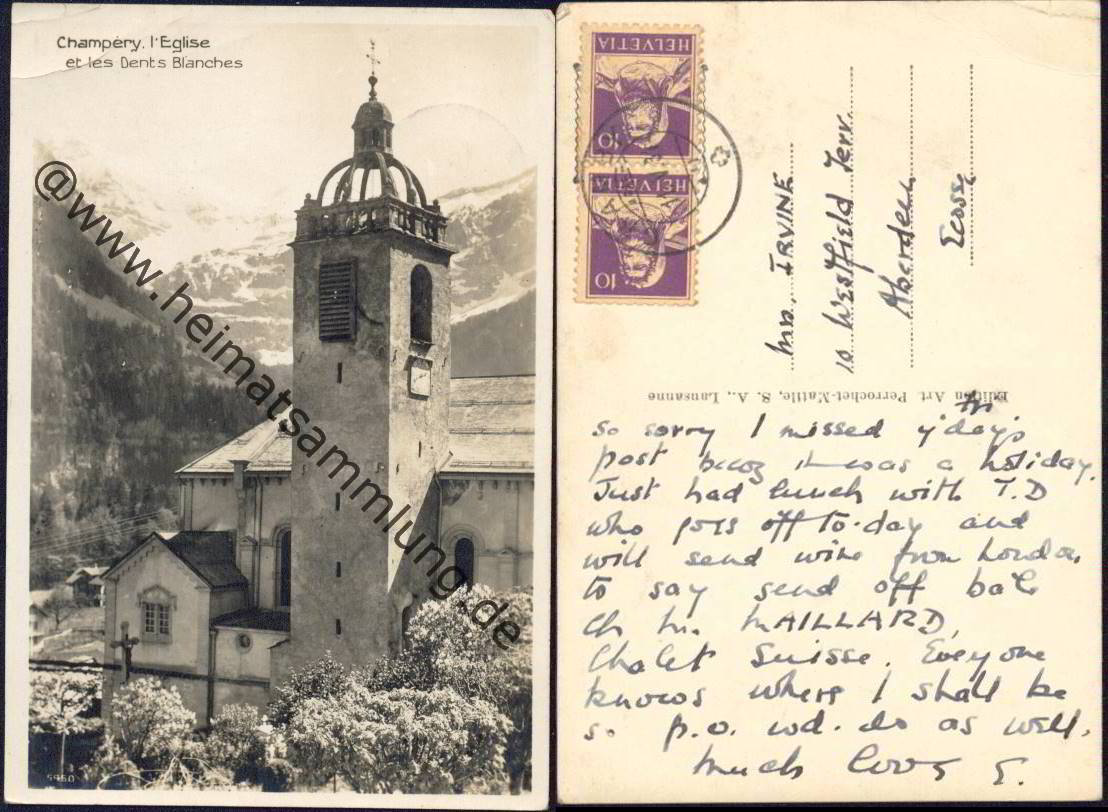 Champéry, l'Eglise
et les Dents Blanches
5950
@www.heimatsammlung.de
HELVETIA
10
HELVETIA
10
Mrs. IRVINE
10 Westfield Terr.
Aberdeen
Ecosse
Edition Art. Perrochet-Matile, S. A., Lausanne
So sorry I missed y'day's
post becoz it was a holiday.
Just had lunch with T.D
who goes off to-day and
will send wire from London
to say send off
MAILLARD,
Chalet Suisse. Everyone
knows where I shall be
so p.o. wd. do as well.
Much love E.